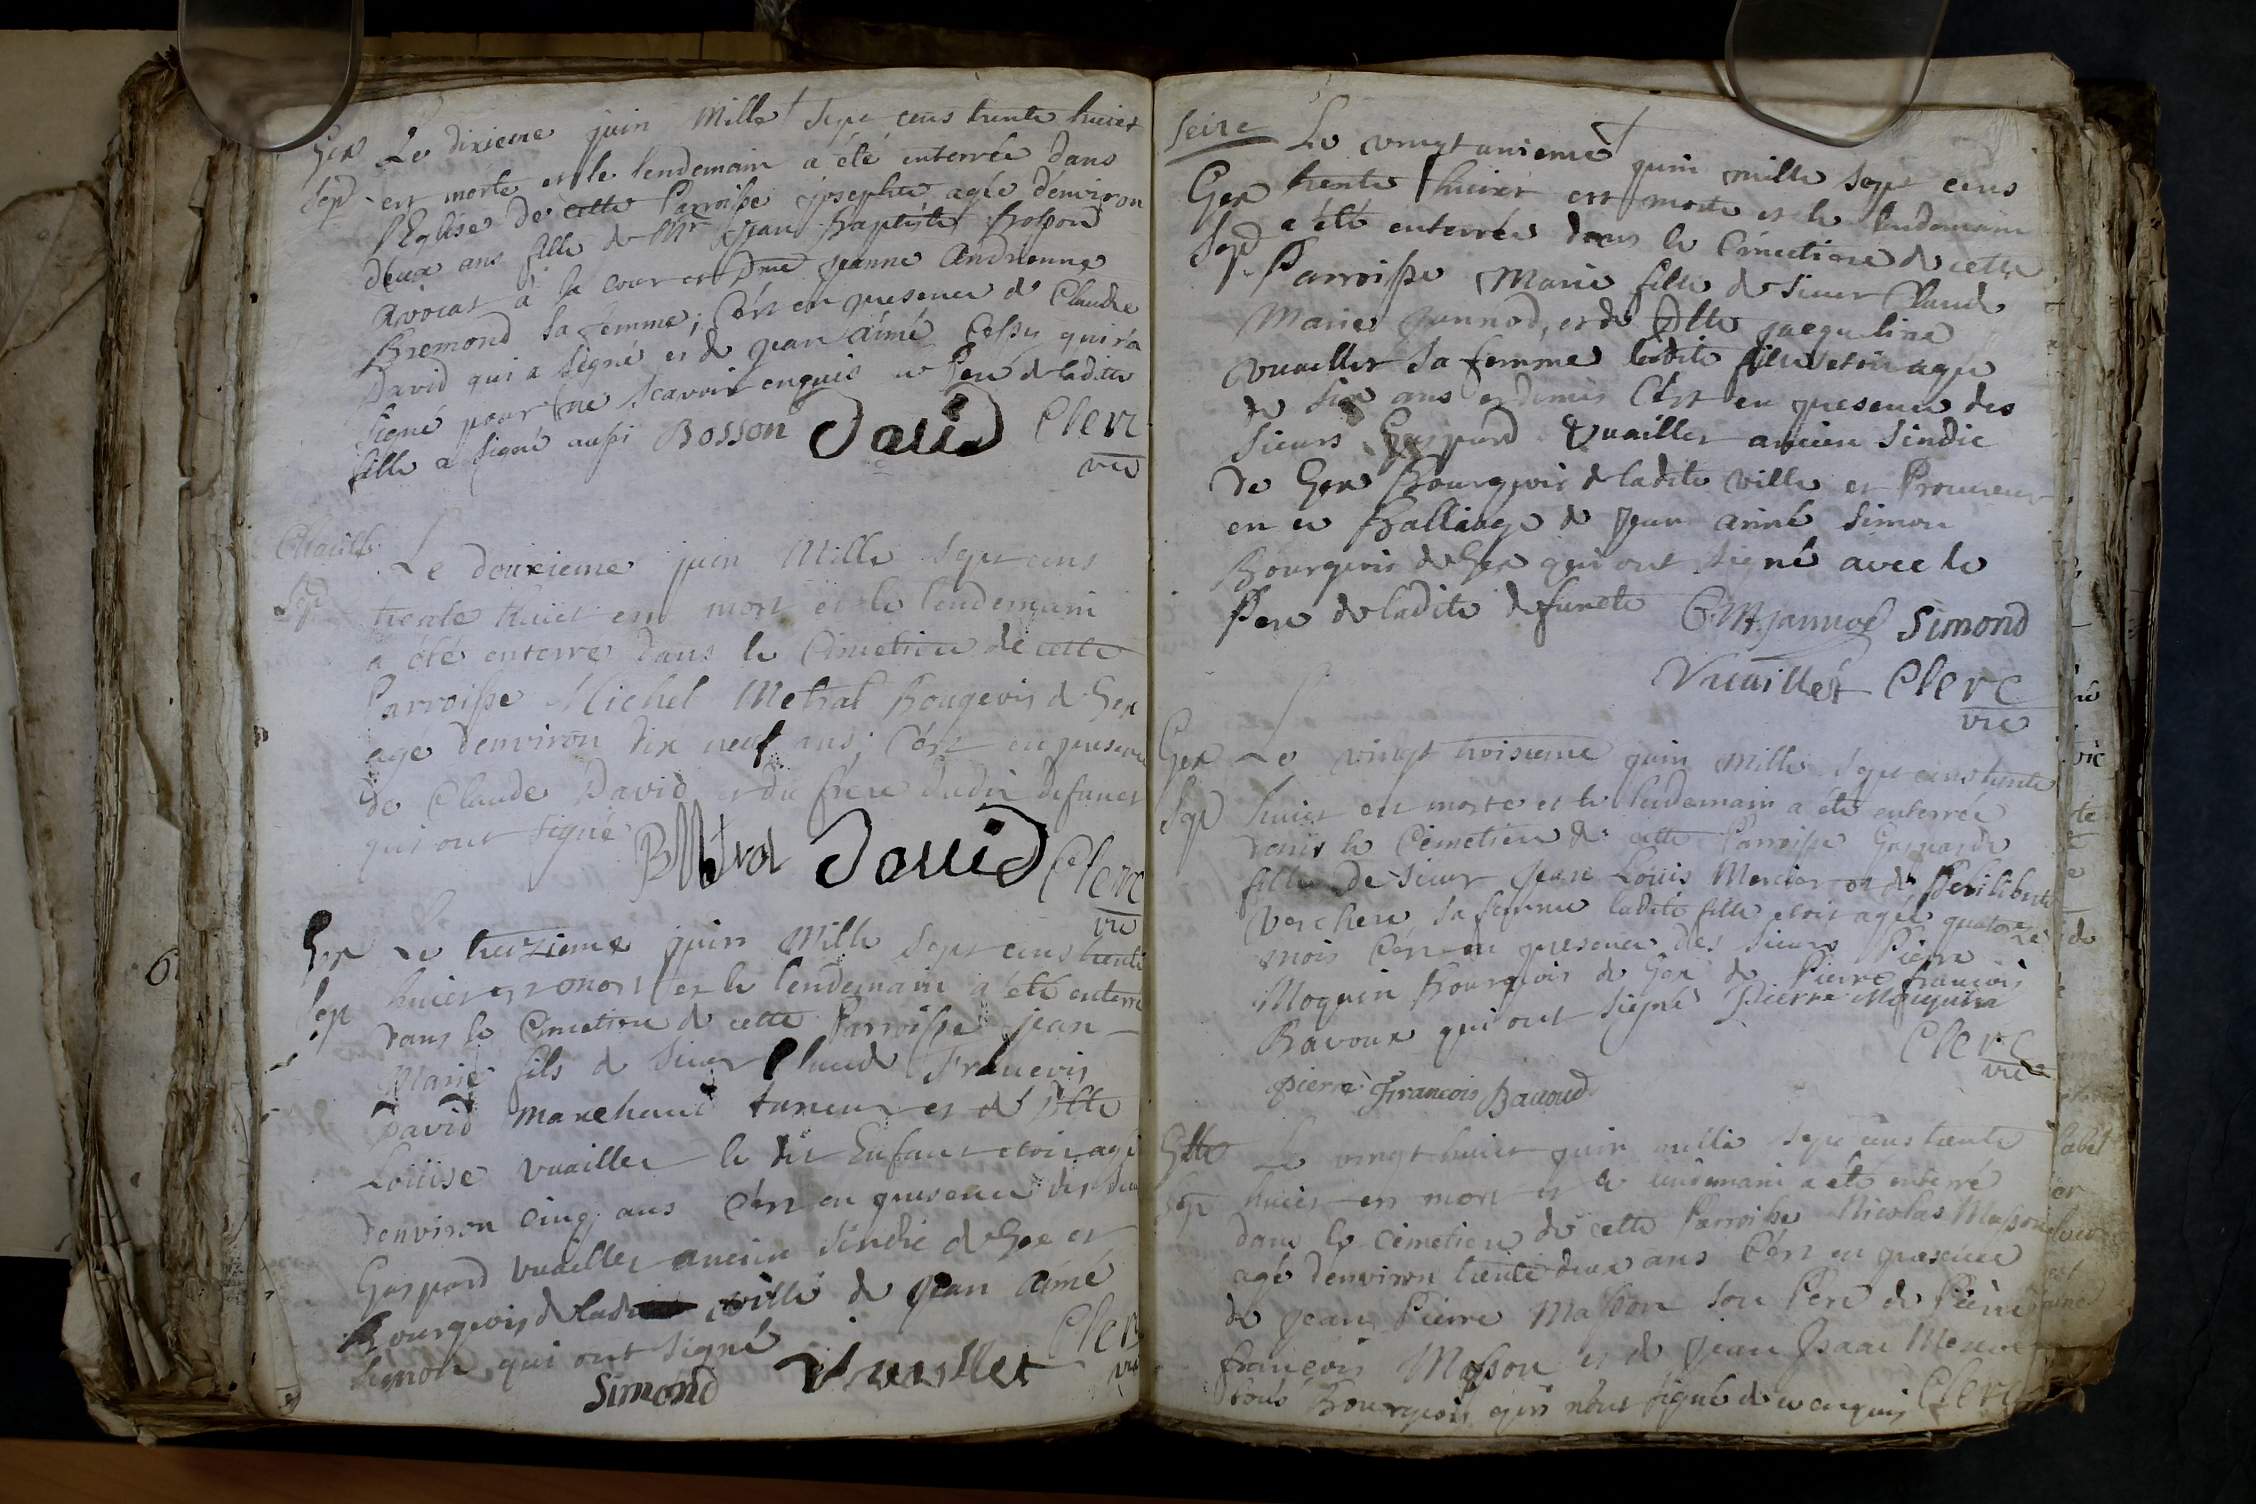 Gex Le dixieme juin Mille sept cens trente huict
Sep. est morte et le lendemain a été enterrée dans
l'Eglise de cette Parroisse josephte agée d'environ
deux ans fille de Mr Jean Baptiste Bosson
avocat à la cour et Dme jeanne Andrienne
Bremond sa femme; c'est en presence de Claude
David qui a signé et de jean aimé qui n'a
signé pour ne scavoir enquis le Peré de ladite
fille a signé aussi Bosson David Clerc
vic
Le douzieme juin Mille sept cens
Sep. trente huict est mort et le lendemain
a été enterré dans le Cimetiere de cette
Parroisse Michel Metral Bougeois de Gex
agé denviron dix neuf ans; C'est en presence
de Claude David et du frere dudit defunct
qui ont signé BMetral David Clerc
vic
Gex Le treizieme juin Mille sept cens trente
Sep huict est mort et le lendemain a été enterré
dans le Cimetiere de cette Parroisse jean
Marie fils de sieur Claude François
David Marchand taneur et de Dlle
Loüise Vuaillet le dit Enfant etoit agé
d'environ cinq ans C'est en presence des
Gaspard Vuaillet ancien sindic de Gex et
Bourgeois de ladite ville de Jean Aimé
Simon qui ont signé Clerc
Simond Vuaillet vic
seize Le vingtunieme juin mille sept cens
Gex trente huict est morte et le lendemain
Sep. a été enterrée dans le Cimetiere de cette
Parroisse Marie fille de sieur Claude
Marie Jannod, et de Dlle jaequeline
Vuaillet sa femme ladite fille etoit agée
de six ans et demis C'est en presence des
sieurs Gaspard Vuaillet ancien sindic
de Gex Bourgeois de ladite ville et Procureur
en ce Balliage de Jean aimé Simon
Bourgeois de Gex qui ont signé avec le
Pere de ladite defuncte CMJannod Simond
Vuaillet Clerc
vic
Gex Le vingt troisieme juin mille sept cens trente
Sep huict est morte et le lendemain a été enterrée
dans le Cimetiere de cette Parroisse Gasparde
fille de sieur Jean Loüis Mercier et de
Verchere sa femme ladite fille etoit agée quatorze
mois C'est en presence des sieurs Pierre
Moquin Bourgeois de Gex de Pierre françois
Bavoux qui ont signé Pierre Moquin
Clerc
vic
pierre François Bauoud
Le vingt huict juin mille sept cens trente
Sep huict est mort et le lendemain a été enterré
dans le Cimetiere de cette Parroisse Nicolas Masson
agé denviron trente deux ans C'est en presence
de Jean Pierre Masson son Pere de Pierre
françois Masson et de Jean Isaac
tous Bourgeois qui n'ont signé de ce enquis Clerc